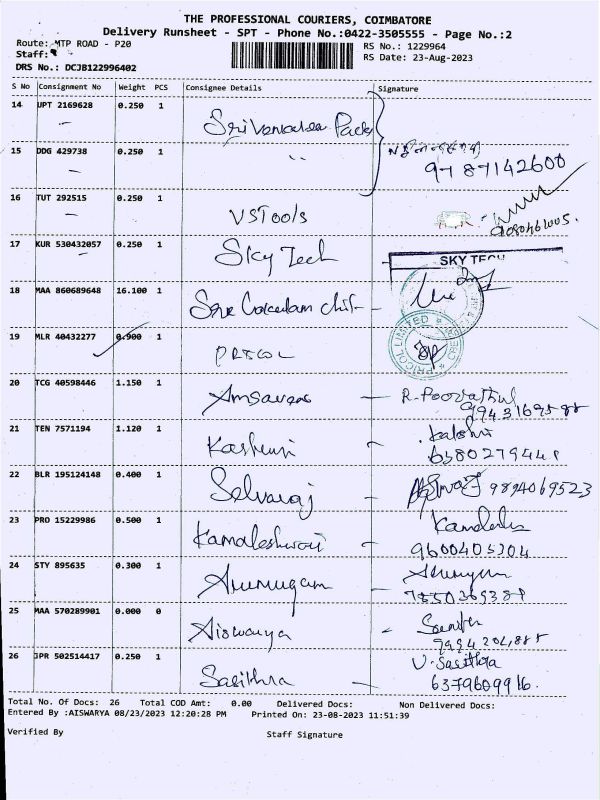 THE PROFESSIONAL COURIERS, COIMBATORE
Delivery Runsheet - SPT - Phone No.:0422-3505555 - Page No.:2
Route: MTP ROAD - P20
RS No.: 1229964
Staff:
RS Date: 23-Aug-2023
DRS No.: DCJB122996402
S No Consignment No Weight PCS Consignee Details Signature
14 UPT 2169628 0.250 1
Pack
15 DDG 429738 0.250 1 "
9787142600
16 TUT 292515 0.250 1 VSTools
17 KUR 530432057 0.250 1 Sky Tech
SKY TECH
18 MAA 860689648 16.100 1 Sree Gokulam Chit
19 MLR 40432277 0.900 1 PRICOL
PRICOL LIMITED
20 TCG 40598446 1.150 1 - R.
21 TEN 7571194 1.120 1
22 BLR 195124148 0.400 1 Selvaraj - 9894069523
23 PRO 15229986 0.500 1 Kamaleshwari -
9600405304
24 STY 895635 0.300 1 Arumugam -
25 MAA 570289901 0.000 0 Aiswarya -
26 JPR 502514417 0.250 1 Sasithra - V. Sasithra
6379609916.
Total No. Of Docs: 26 Total COD Amt: 0.00 Delivered Docs: Non Delivered Docs:
Entered By :AISWARYA 08/23/2023 12:20:28 PM Printed On: 23-08-2023 11:51:39
Verified By Staff Signature